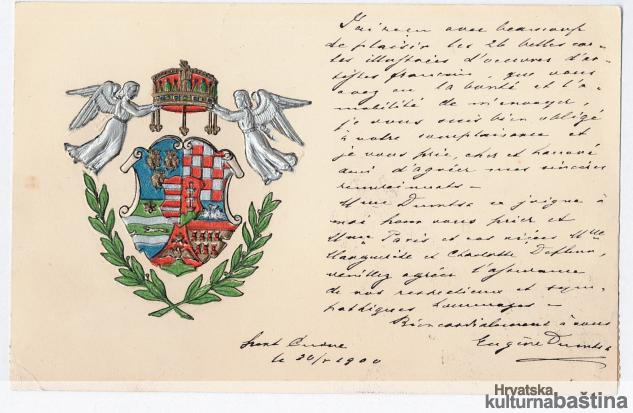 J'ai reçu avec beaucoup
de plaisir les 26 belles car-
tes illustrées d'oeuvres d'ar-
tistes français, que vous
avez eu la bonté et l'a-
mabilité de m'envoyer,
je vous suis bien obligé
à votre complaisance et
je vous prie, cher et honoré
ami d'agréer mes sincères
remerciments —
Mme Dumtsa se joigne à
moi pour vous prier et
Mme Paris et vos nièces Mlle
Marguerite et Charlotte
veuillez agréer l'assurance
de nos respectueux et sym-
pathiques hommages —
Bien cordialement à vous
Eugène
le 20/ 1900
Hrvatska
kulturnabaština